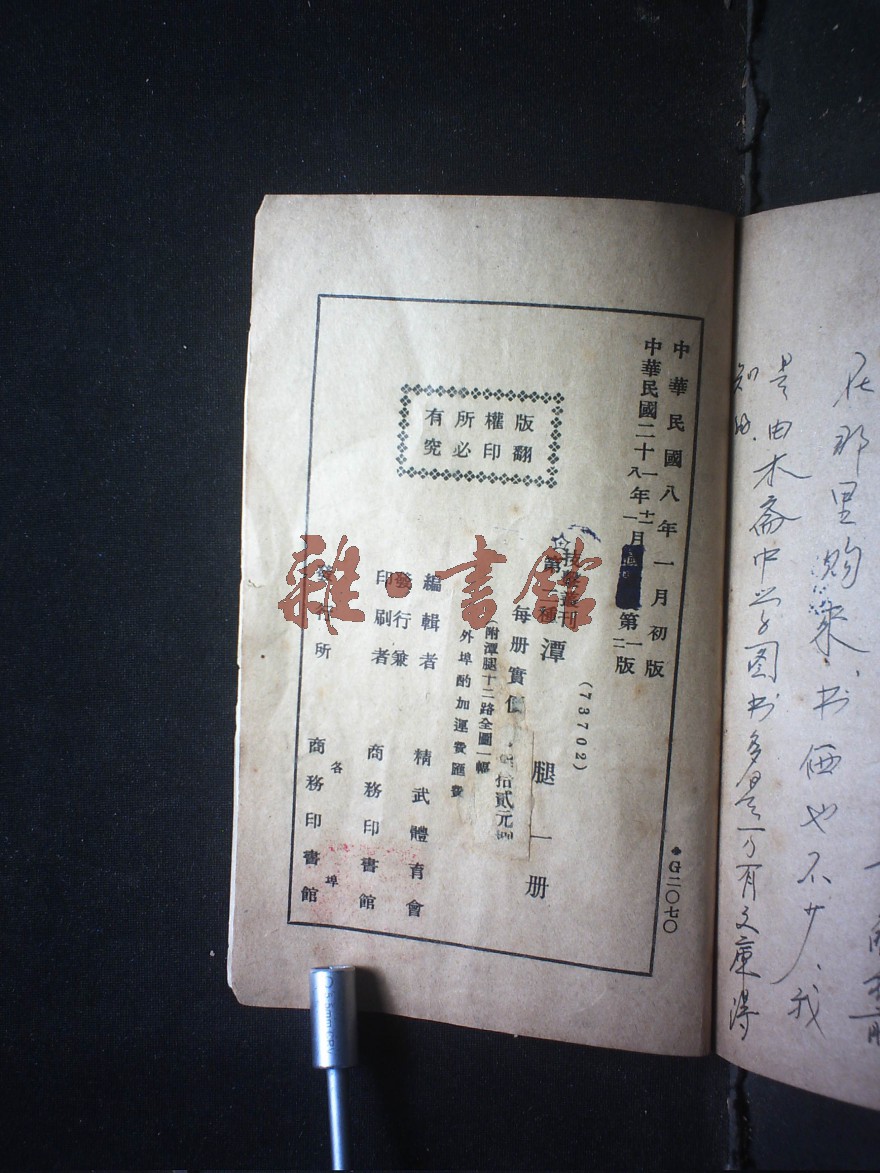 在那里购来,书価也不少,我
是由木斋中学图书
知
中華民國八年一月初版
中華民國二十一年十二月
八 一
第一版
二
◆G二〇七〇
(73702)
技擊叢刊
第一種
潭腿一册
每册實價
拾貳元
(附潭腿十二路全圖一幅
外埠酌加運費匯費
版權所有
翻印必究
編輯者 精武體育會
發行兼
印刷者 商務印書館
發行所 各埠 商務印書館
雜·書館